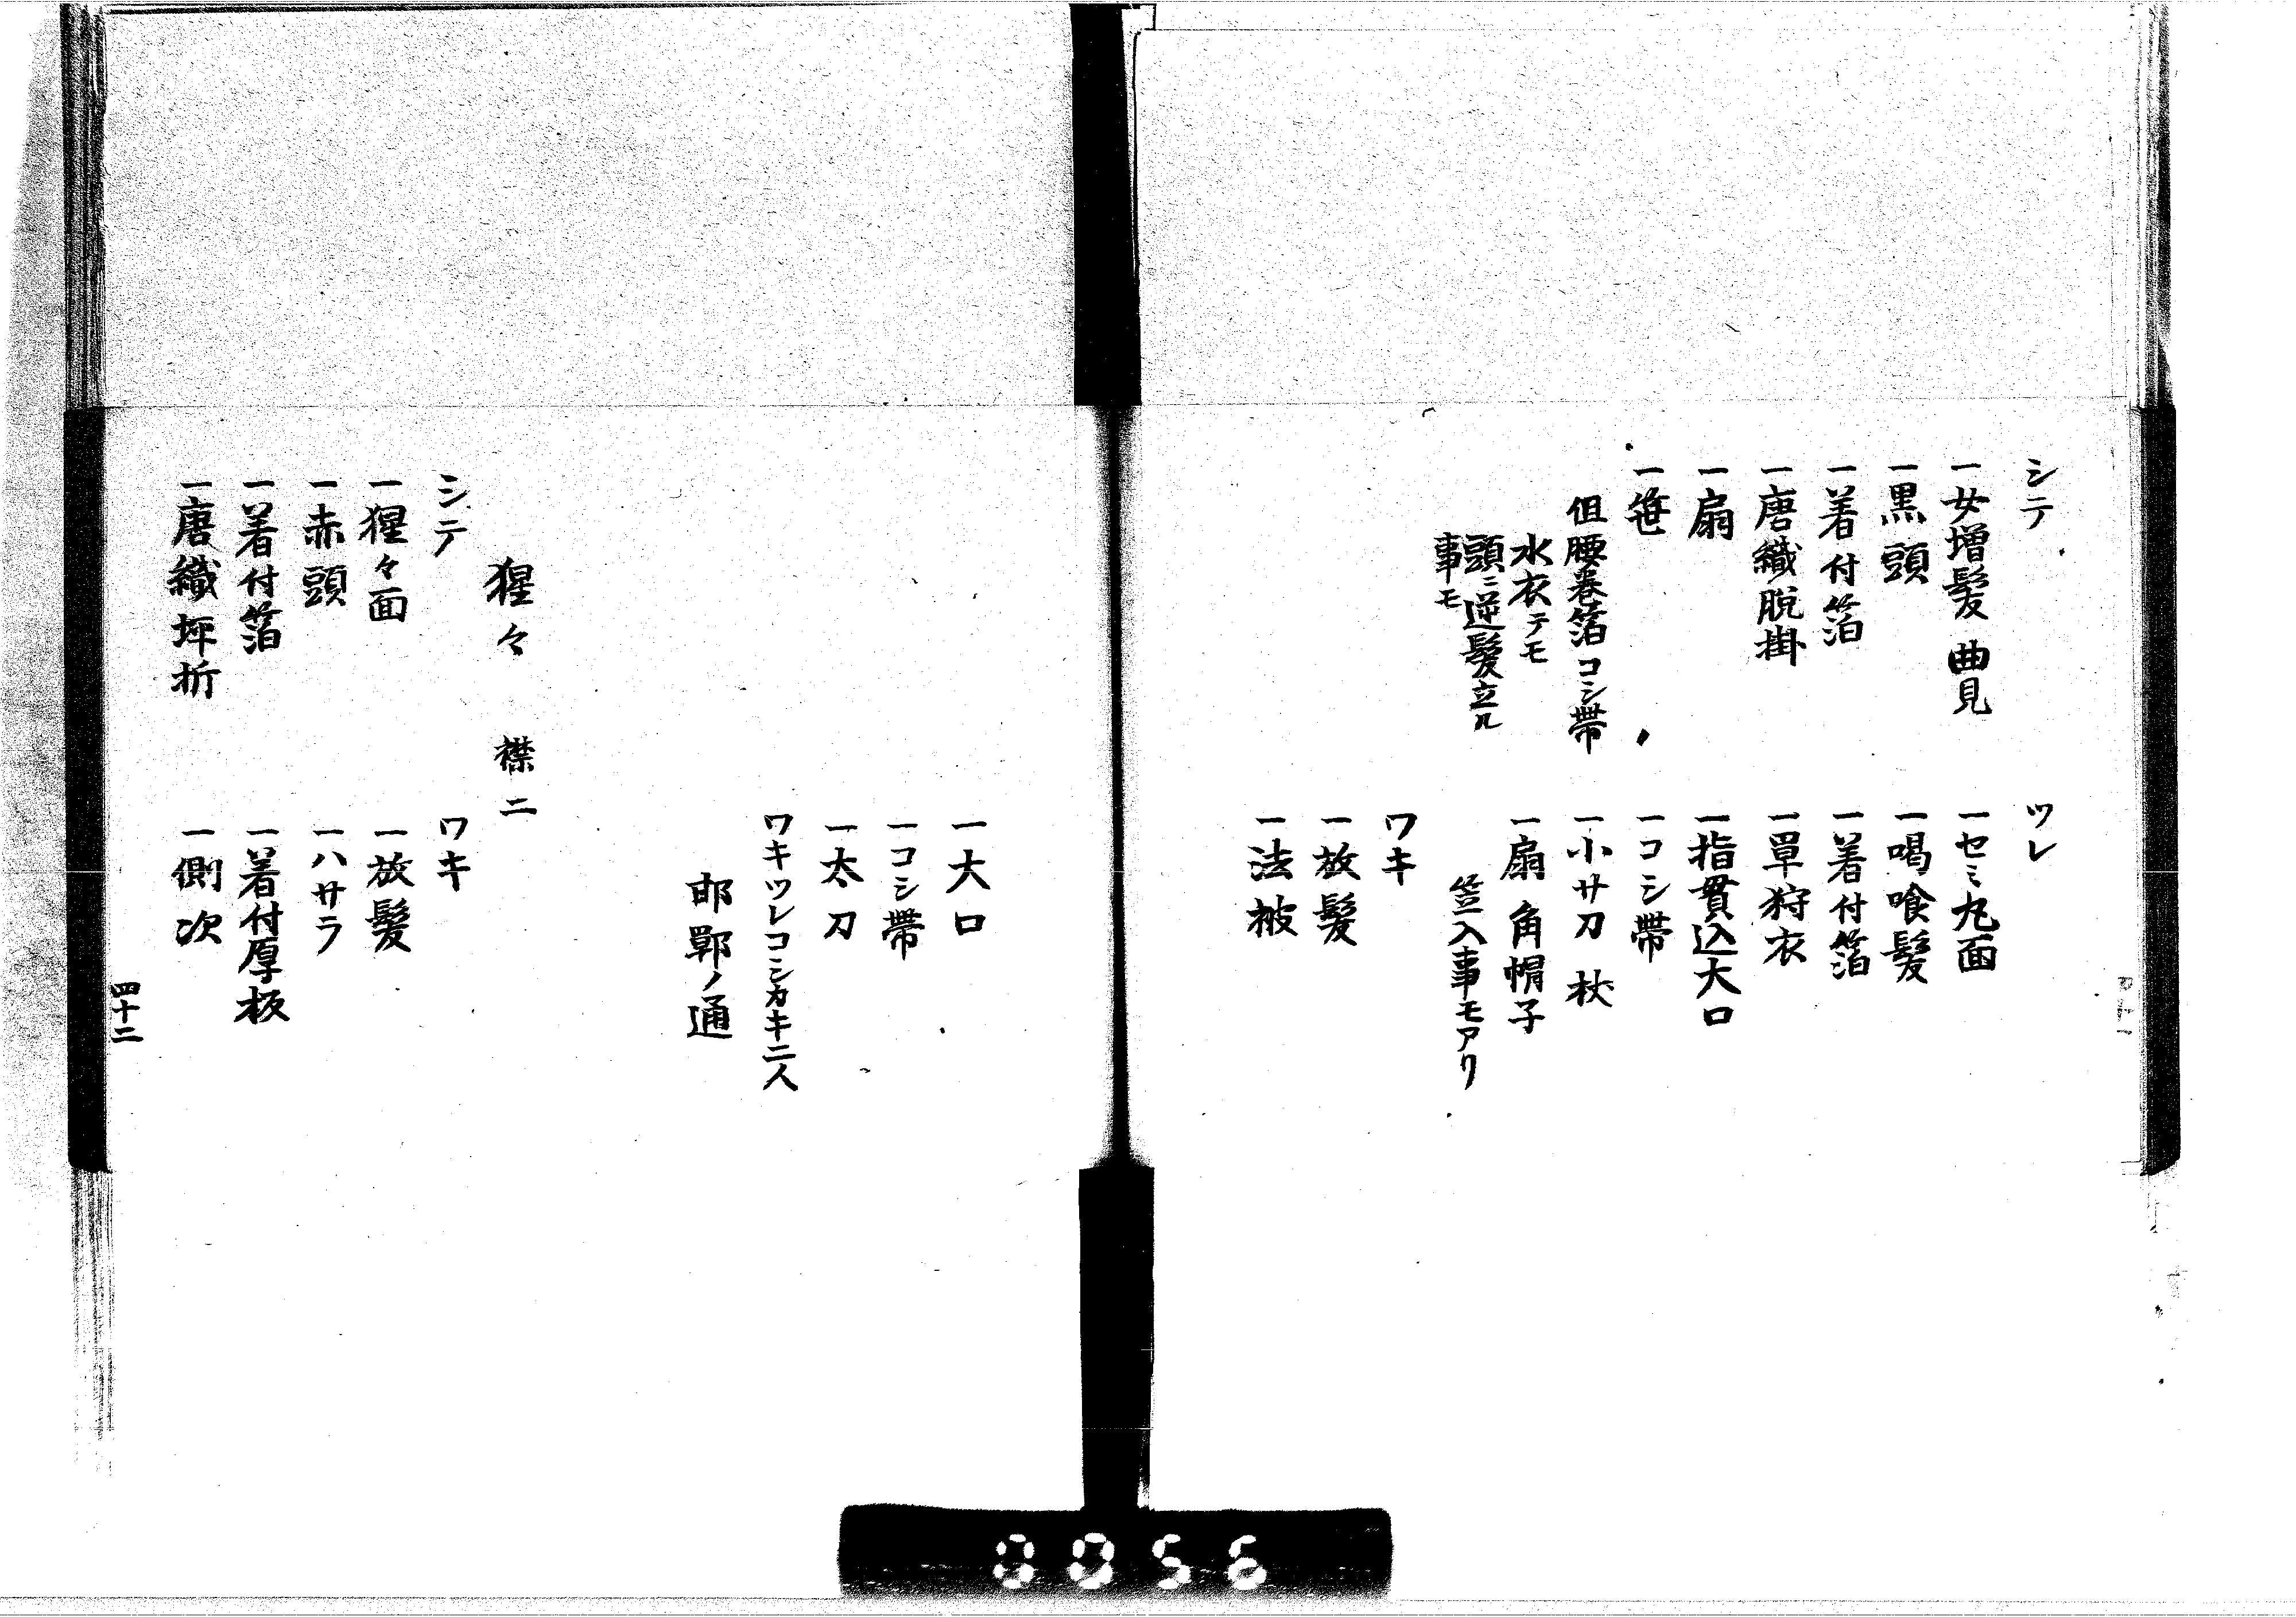 シテ
一女増髪 曲見
一黒頭
一着付箔
一唐織脱掛
一扇
一笹
但腰巻箔コシ帯
水衣テモ
頭ニ逆髪立ル
事モ
ツレ
一セミ丸面
一喝喰髪
一着付箔
一単狩衣
一指貫込大口
一コシ帯
一小サ刀 杖
一扇 角帽子
笠入事モアリ
ワキ
一放髪
一法被
一大口
一コシ帯
一太刀
ワキツレコシカキ二人
邯鄲ノ通
猩々 襟二
シテ
一猩々面
一赤頭
一着付箔
一唐織坪折
ワキ
一放髪
一ハサラ
一着付厚板
一側次
四十二
0056